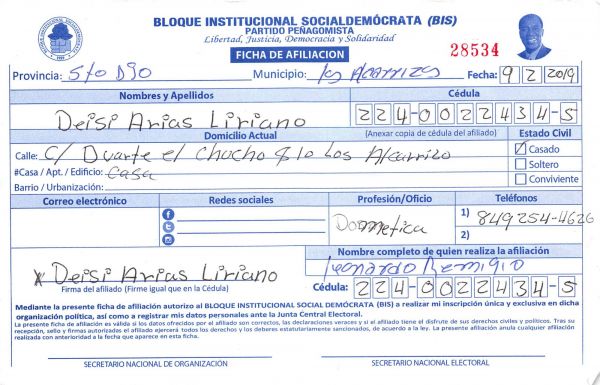 BLOQUE INSTITUCIONAL SOCIALDEMÓCRATA (BIS)
PARTIDO PEÑAGOMISTA
Libertad, Justicia, Democracia y Solidaridad
FICHA DE AFILIACION
28534
Provincia: Sto Dgo Municipio: los Alcarrizos Fecha: 9 2 2019
Nombres y Apellidos Cédula
Deisi Arias Liriano 224-0022434-5
Domicilio Actual (Anexar copia de cédula del afiliado) Estado Civil
Calle: C/ Duarte el chucho Los Alcarrizo Casado
#Casa / Apt. / Edificio: Casa Soltero
Barrio / Urbanización: Conviviente
Correo electrónico Redes sociales Profesión/Oficio Teléfonos
Dometica 1) 849254-4626
2)
Nombre completo de quien realiza la afiliación
x Deisi Arias Liriano Leonardo Remigio
Firma del afiliado (Firme igual que en la Cédula) Cédula: 224-0022434-5
Mediante la presente ficha de afiliación autorizo al BLOQUE INSTITUCIONAL SOCIAL DEMÓCRATA (BIS) a realizar mi inscripción única y exclusiva en dicha
organización política, así como a registrar mis datos personales ante la Junta Central Electoral.
La presente ficha de afiliación es válida si los datos ofrecidos por el afiliado son correctos, las declaraciones veraces y si el afiliado tiene el disfrute de sus derechos civiles y políticos. Tras su
recepción, sello y firmas autorizadas el afiliado ejercerá todos los derechos y los deberes estatutariamente sancionados, de acuerdo a la ley. La presente afiliación anula cualquier afiliación
realizada con anterioridad a la fecha que aparece en esta ficha.
SECRETARIO NACIONAL DE ORGANIZACIÓN SECRETARIO NACIONAL ELECTORAL